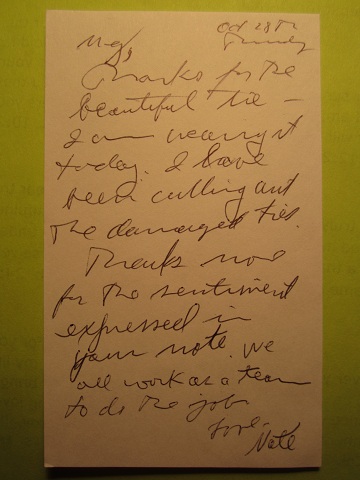 Oct 28th
Meg, Thursday
Thanks for the
beautiful tie –
I am wearing it
today. I have
been culling out
the damaged ties.
Thanks more
for the sentiment
expressed in
your note. We
all work as a team
to do the job.
Love,
Nate